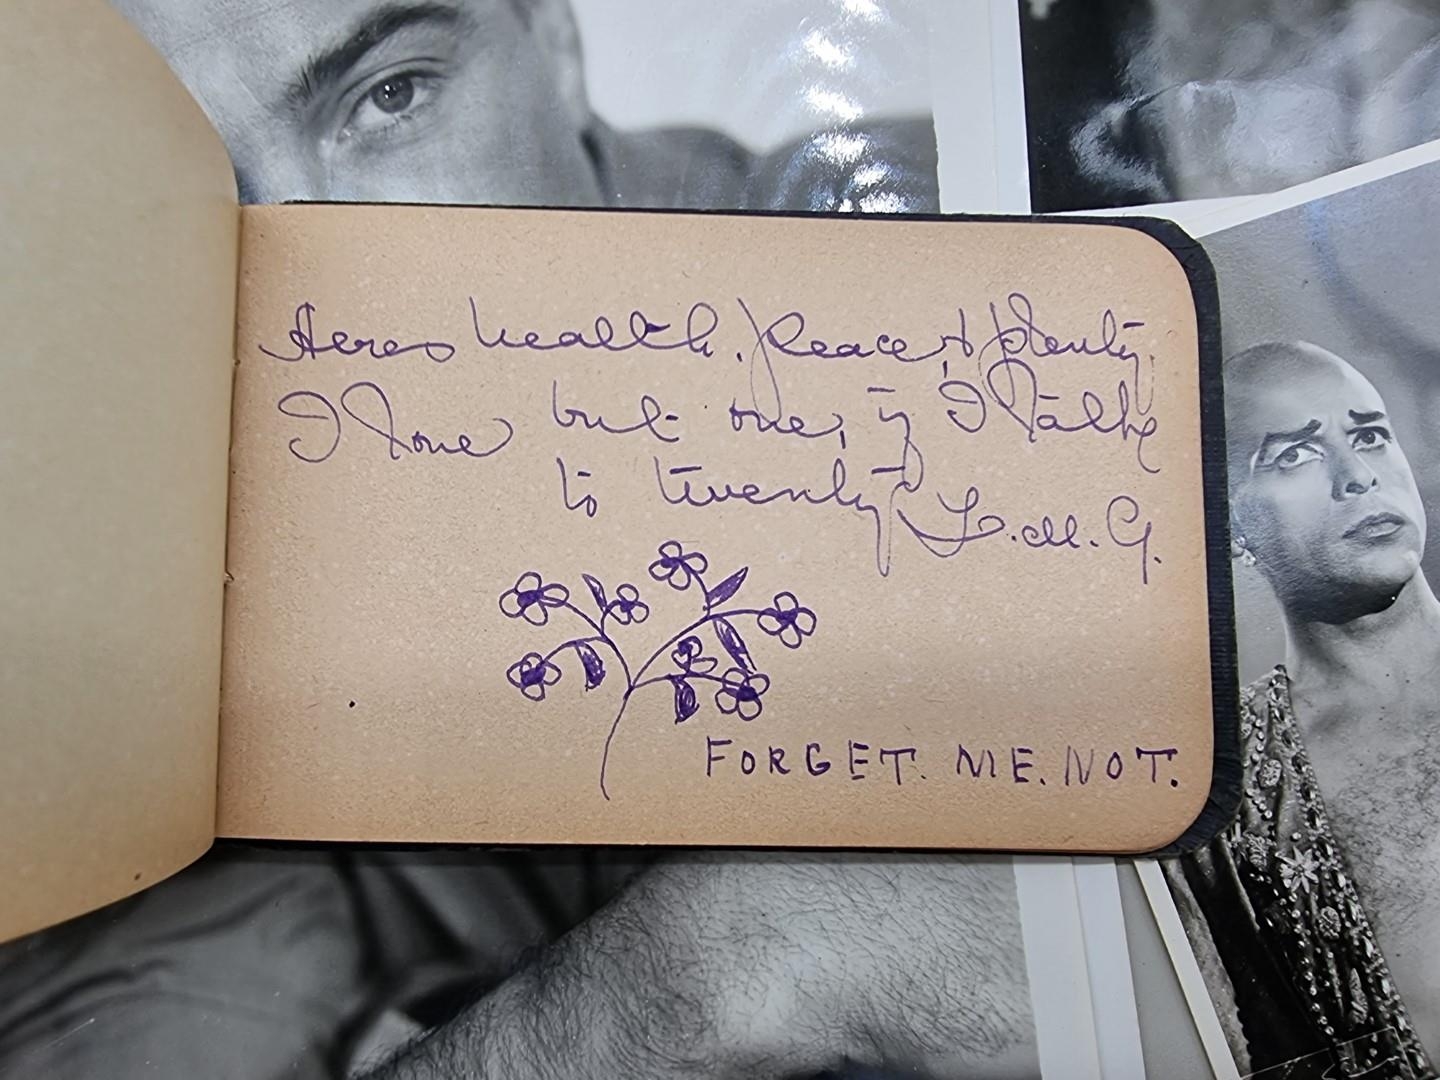 Heres health, Peace, & plenty.
I love but one, if I talk
to twenty
L.M.G.
FORGET. ME. NOT.